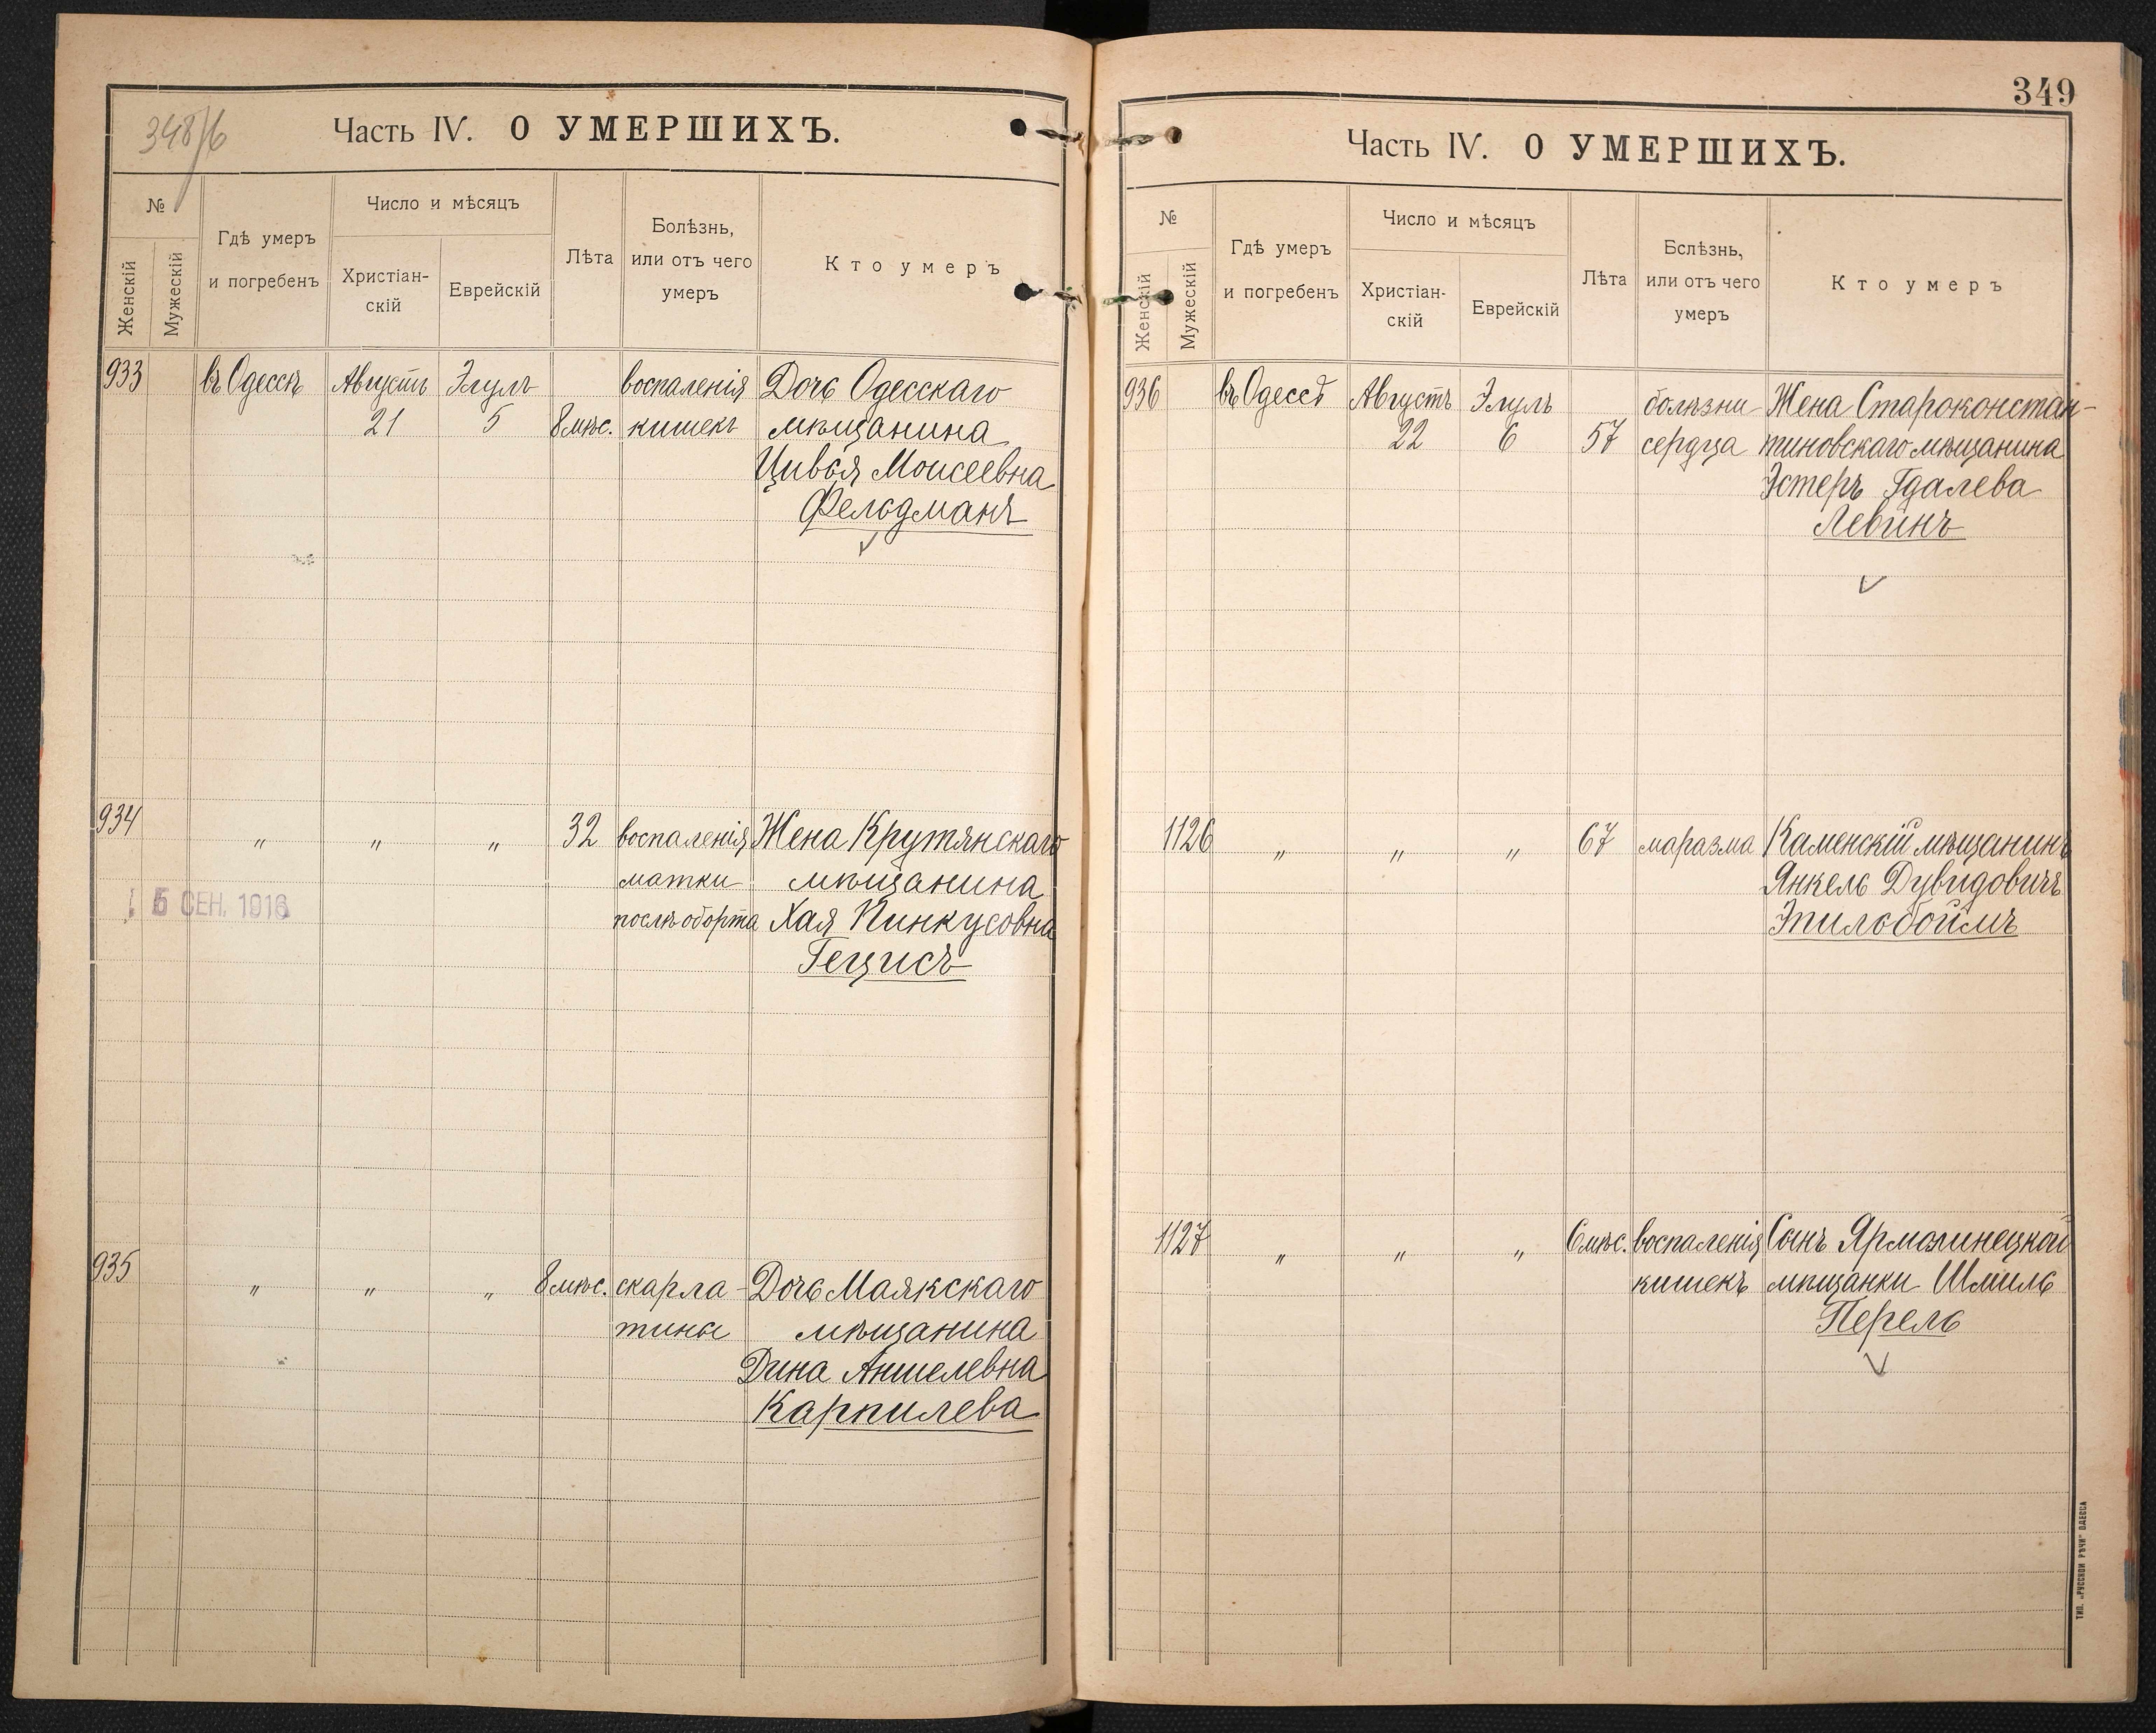 348/6
Часть IV. О УМЕРШИХЪ.
№
Женскій
Мужескій
Гдѣ умеръ
и погребенъ
Число и мѣсяцъ
Христіан-
скій
Еврейскій
Лѣта
Болѣзнь,
или отъ чего
умеръ
Кто умеръ
933 въ Одессѣ Августъ Элулъ воспаленія Дочь Одесскаго
21 5 8 мѣс. кишекъ мѣщанина
Цивья Моисеевна
Фельдманъ
934 " " " 32 воспаленія Жена Крутянскаго
матки мѣщанина
послѣ оборта Хая Пинкусовна
Гецисъ
5 СЕН. 1916
935 " " " 8 мѣс. скарла- Дочь Маякскаго
тины мѣщанина
Дина Аншелевна
Карпилева
349
Часть IV. О УМЕРШИХЪ.
№
Женскій
Мужескій
Гдѣ умеръ
и погребенъ
Число и мѣсяцъ
Христіан-
скій
Еврейскій
Лѣта
Бслѣзнь,
или отъ чего
умеръ
Кто умеръ
936 въ Одессѣ Августъ Элулъ болѣзни Жена Староконстан-
22 6 57 сердца тиновскаго мѣщанина
Эстеръ Гдалева
Левинъ
1126 " " " 67 маразма Каменскій мѣщанинъ
Янкель Дувидовичъ
Эпильбоймъ
1127 " " " 6 мѣс. воспаленія Сынъ Ярмолинецкой
кишекъ мѣщанки Шмиль
Перель
ТИП. „РУССКОЙ РѢЧИ" ОДЕССА